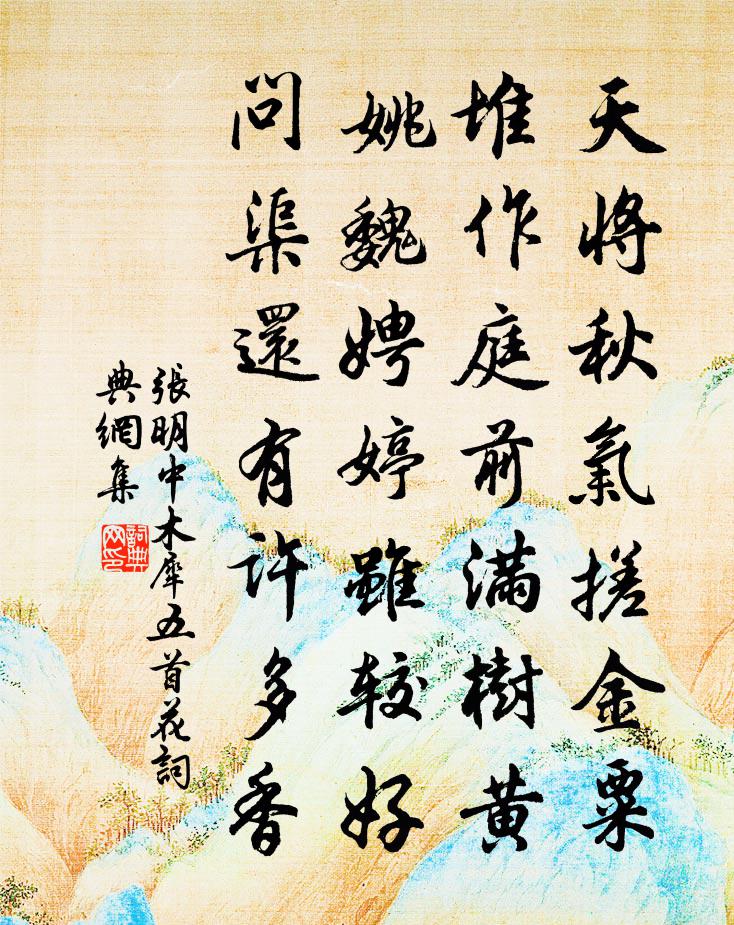 天將秋氣搓金粟
堆作庭前滿樹黄
姚魏娉婷雖较好
問渠還有許多香
張明中木犀五首花詞
典網集
詞典
网印